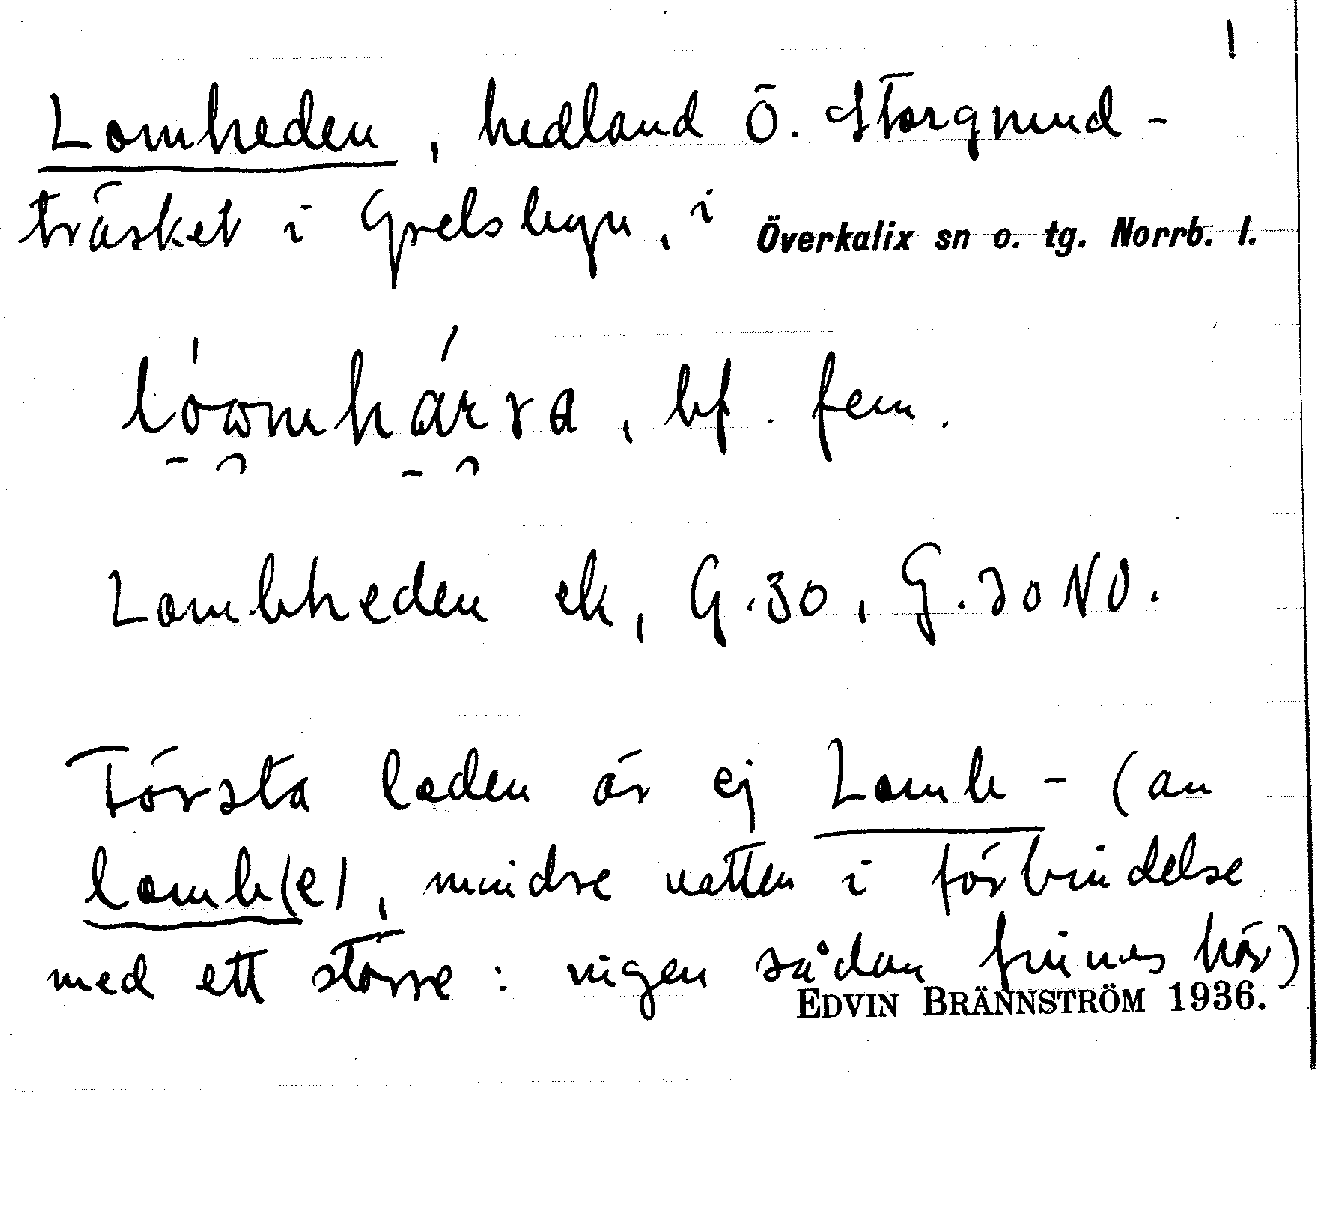 1
Lomheden, hedland Ö. Storgrund-
träsket i Grelsbyn, i Överkalix sn o. tg. Norrb. l.
bf. fem.
Lombheden ek, G.30, G.30 NO.
Första leden är ej Lomb- (an
lomb(e), mindre vatten i förbindelse
med ett större: ingen sådan finnes här)
EDVIN BRÄNNSTRÖM 1936.